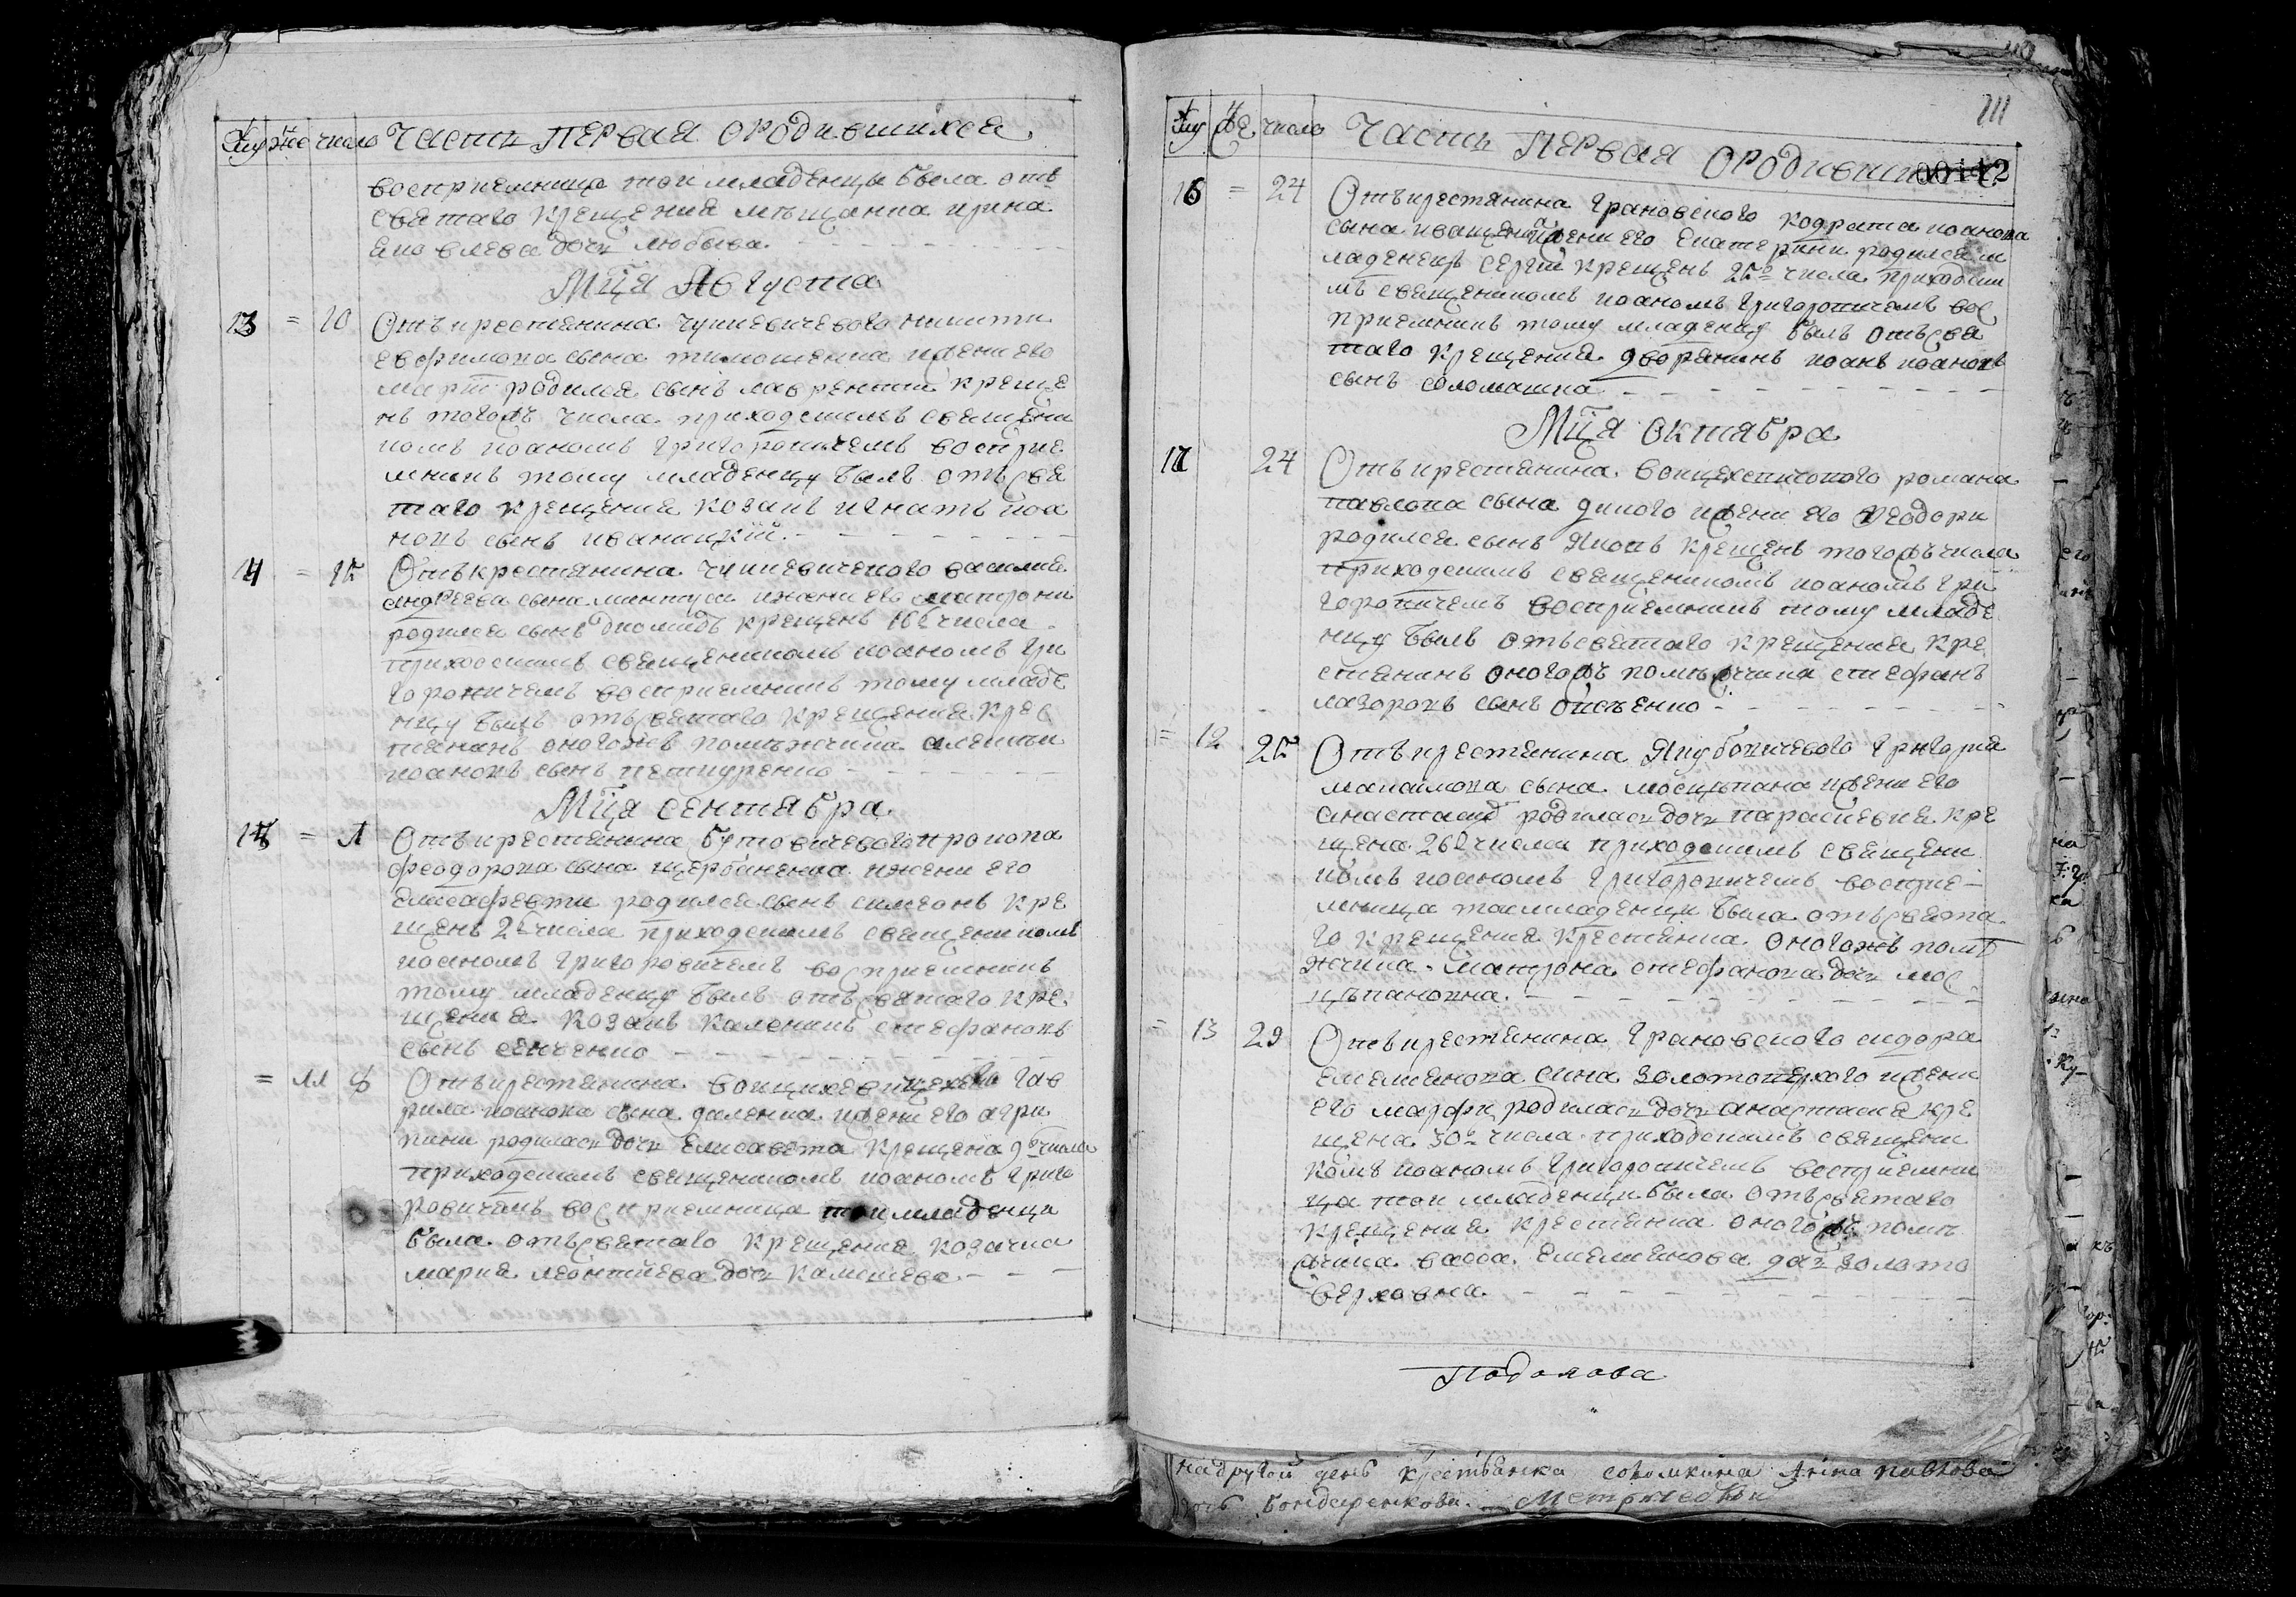 Му же число Часть первая о родившихся
восприемница той младенцы была отъ
святаго крещения мѣщанка ирина
яковлева дочь
Мца Августа
13 = 10 Отъ крестянина никити
евфимова сына тимошенка и жени его
родился сынъ лаврентий креще
нъ тогожъ числа приходскимъ священи
комъ иоаномъ григоровичемъ восприе
мникъ тому младенцу былъ отъ свя
таго крещения козакъ игнатъ иоа
новъ сынъ иваницкий
14 = 15 Отъ крестянина василия
андреева сына и жени его матрони
родился сынъ диомидъ крещенъ 16 числа
приходскимъ священикомъ иоаномъ гри
горовичемъ восприемникъ тому младе
нцу былъ отъ святаго крещения крес
тянинъ оногожъ помѣжчика алексѣи
иоановъ сынъ петренко
Мца сентября
15 = 1 Отъ крестянина бутовичевого прокопа
феодорова сына щербаненка и жени его
елисафети родился сынъ симеонъ кре
щенъ 2 числа приходскимъ священикомъ
иоаномъ григоровичемъ восприемникъ
тому младенцу былъ отъ святаго кре
щения козакъ каленикъ стефановъ
сынъ сенченко
= 11 8 Отъ крестянина гав
рила иоанова сына даленка и жени его агри
пини родилась дочь елисавета крещена 9 числа
приходскимъ священикомъ иоаномъ григо
ровичемъ восприемница той младенци
была отъ святаго крещения козачка
мария леонтиева дочь
111
Му же число Часть первая о родившихся
00112
16 = 24 Отъ крестянина грановского кодрата иоанова
сына иващенка и жени его екатерини родился м
ладенецъ сергий крещенъ 25 числа приходски
мъ священикомъ иоаномъ григоровичемъ вос
приемникъ тому младенцу былъ отъ свя
таго крещения дворянинъ иоанъ иоановъ
сынъ соломашка
Мца октября
17 24 Отъ крестянина романа
павлова сына дикого и жени его феодори
родился сынъ яковъ крещенъ тогожъ числа
приходскимъ священикомъ иоаномъ гри
горовичемъ восприемникъ тому младе
нцу былъ отъ святаго крещения кре
стянинъ оногожъ помѣжчика стефанъ
лазоровъ сынъ
= 12 25 Отъ крестянина якубовичевого григория
сына мосцѣпана и жени его
анастасиѣ родилась дочь параскевия кре
щена 26 числа приходскимъ священи
комъ иоаномъ григоровичемъ восприе
мница той младенци была отъ свята
го крещения крестянка оногожъ помѣ
жчика матрона стефанова дочь мос
цѣпановна
= 13 29 Отъ крестянина грановского сидора
емелянова сина золотоверхого и жени
его марфи родилась дочь анастасия кре
щена 30 числа приходскимъ священи
комъ иоаномъ григоровичемъ восприемни
ца той младенци была отъ святаго
крещения крестянка оногожъ помѣ
жчика васса емелянова дочь золото
верховна
на другой день крестьянка Анна павлова
дочь бондаренкова.